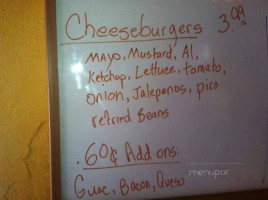 Cheeseburgers 3.99
Mayo, Mustard, A1,
Ketchup, Lettuce, tomato,
onion, Jalepenos, pico
refried Beans
.60¢ Add ons:
Guac, Bacon, Queso
menupix